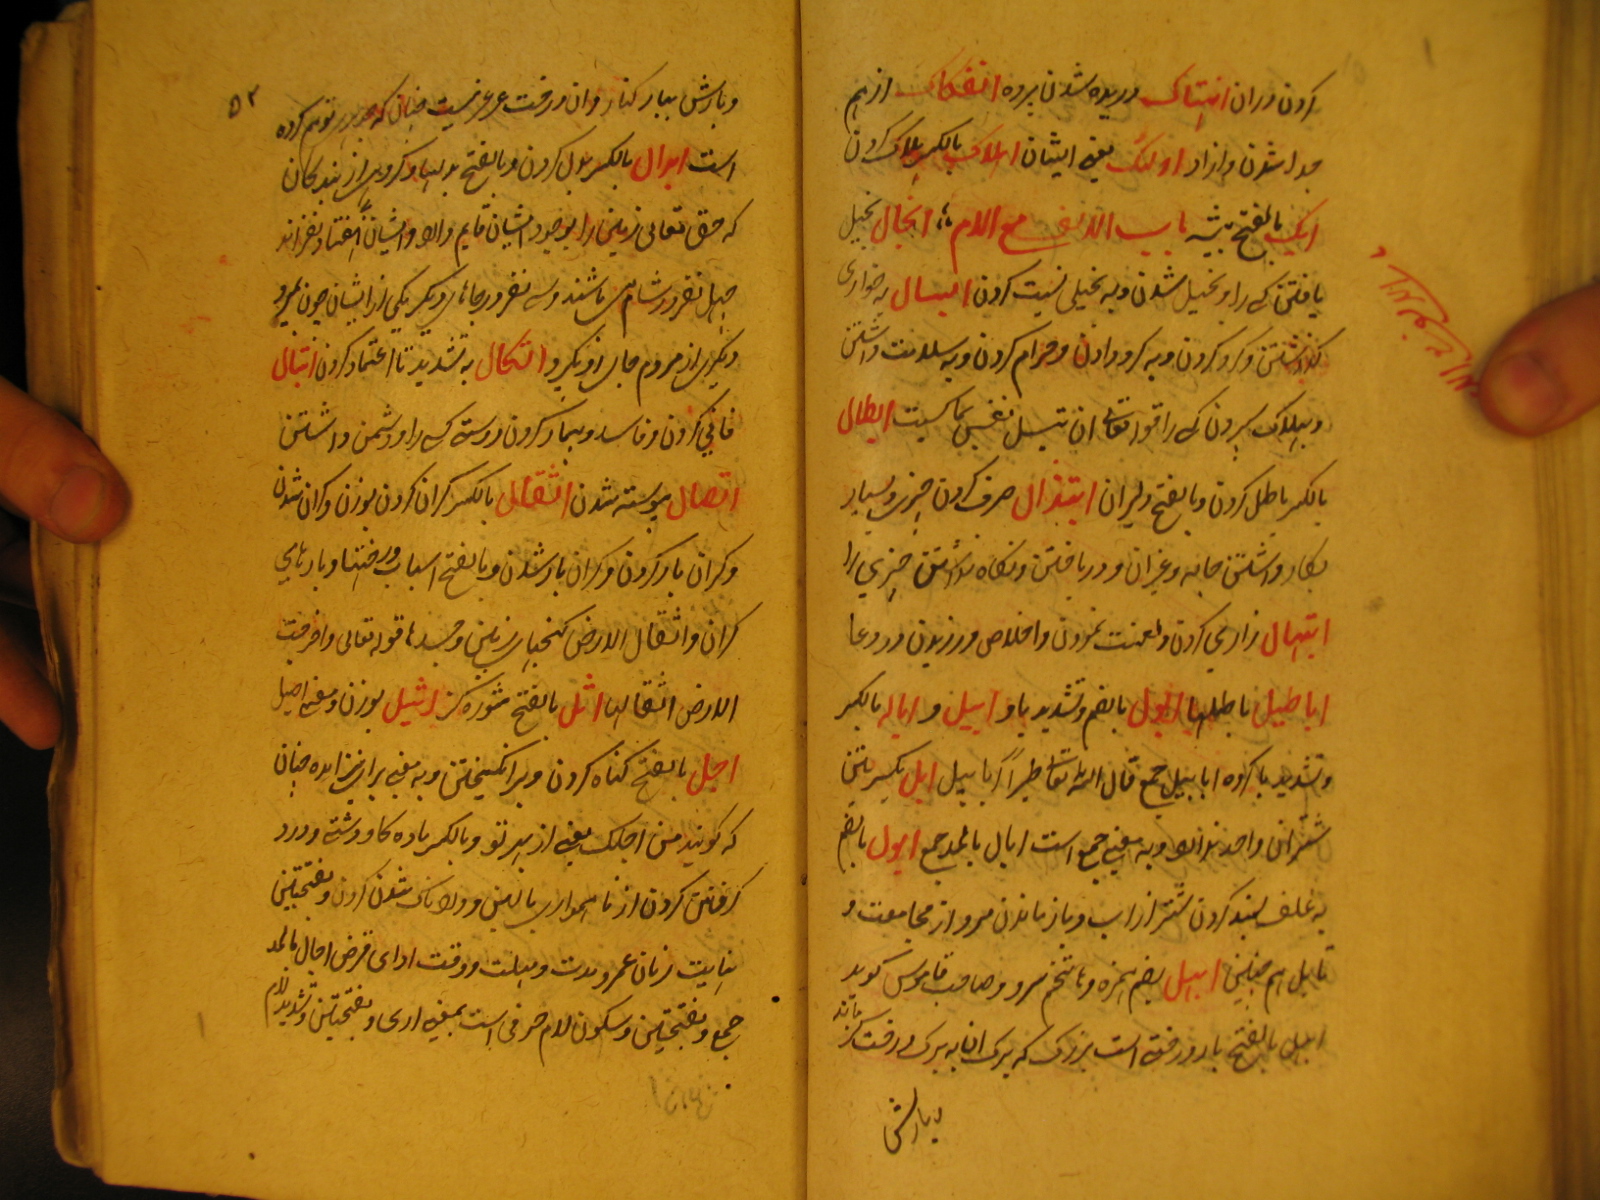 کردن دران انتهاک دریده شدن پرده انفکاک از هم
جدا شدن و ازاد اولئک یعنی ایشان اهلاک بالکسر هلاک کردن
ایک بالفتح بیشه باب الالف مع اللام ابخال بخیل
یافتن کسی را و بخیل شدن و به بخیلی نسبت کردن ابسال به خواری
کذاشتن و کرو کردن و به کرو دادن و حرام کردن و به سلامت داشتن
و بهلاک سپردن کسی را قوله تعالی ان تبسل نفس بما کسبت ابطال
بالکسر باطل کردن و بالفتح دلیران ابتذال صرف کردن چیزی و بسیار
بکار داشتن جامه و غیر ان و دریافتن و نگاه نداشتن چیزی را
ابتهال زاری کردن و لعنت نمودن و اخلاص ورزیدن در دعا
اباطیل باطلها ابول بالضم و تشدید با و ابیل و اباله بالکسر
و تشدید با کروه ابابیل جمع قال الله تعالی طیرا ابابیل ابل بکسرتین
شتران واحد ندارد و به معنی جمع است ابال بالمد جمع ابول بالضم
به علف بسند کردن شتر از اب و باز ماندن مرد از مجامعت و
تابل هم چنین ابهل بضم همزه و ها تخم سرو و صاحب قاموس کوید
ابهل بالفتح بار درختی است بزرک که برک ان به برک درخت کز ماند
و بارش
و بارش ببار کنار و ان درخت عرعر نیست چنان که جوهری توهم کرده
است ابدال بالکسر بدل کردن و بالفتح بدلها و کروهی از بندکان
که حق تعالی زمین را بوجود ایشان قایم دارد و ایشان هفتاد نفر اند
چهل نفر در شام می باشند و سی نفر در جاهای دیکر یکی از ایشان چون بمیرد
دیکری از مردم جای او بکیرد اتکال به تشدید تا اعتماد کردن اتبال
فانی کردن و فاسد و بیمار کردن دوستی کسی را و دشمن داشتن
اتصال پیوسته شدن اثقال بالکسر کران کردن بوزن و کران شدن
و کران بار کردن و کران بار شدن و بالفتح اسباب و رختها و بارهای
کران و اثقال الارض کنجهای زمین و جسدها قوله تعالی و اخرجت
الارض اثقالها اثل بالفتح شوره کز اثیل بوزن و معنی اصیل
اجل بالفتح کناه کردن و برانکیختن و به معنی برای نیز امده چنان
که کویند من اجلک یعنی از بهر تو و بالکسر ماده کاو دشتی و درد
کرفتن کردن از ناهمواری بالین و دردناک شدن کردن و بفتحتین
نهایت زمان عمر و مدت و مهلت و وقت ادای قرض اجال بالمد
جمع و بفتحتین و سکون لام حرفی است بمعنی اری و بفتحتین و تشدید لام